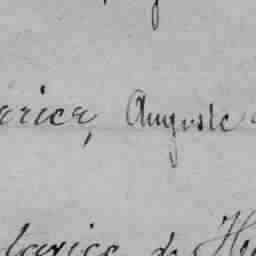 erice, Auguste
larice de He